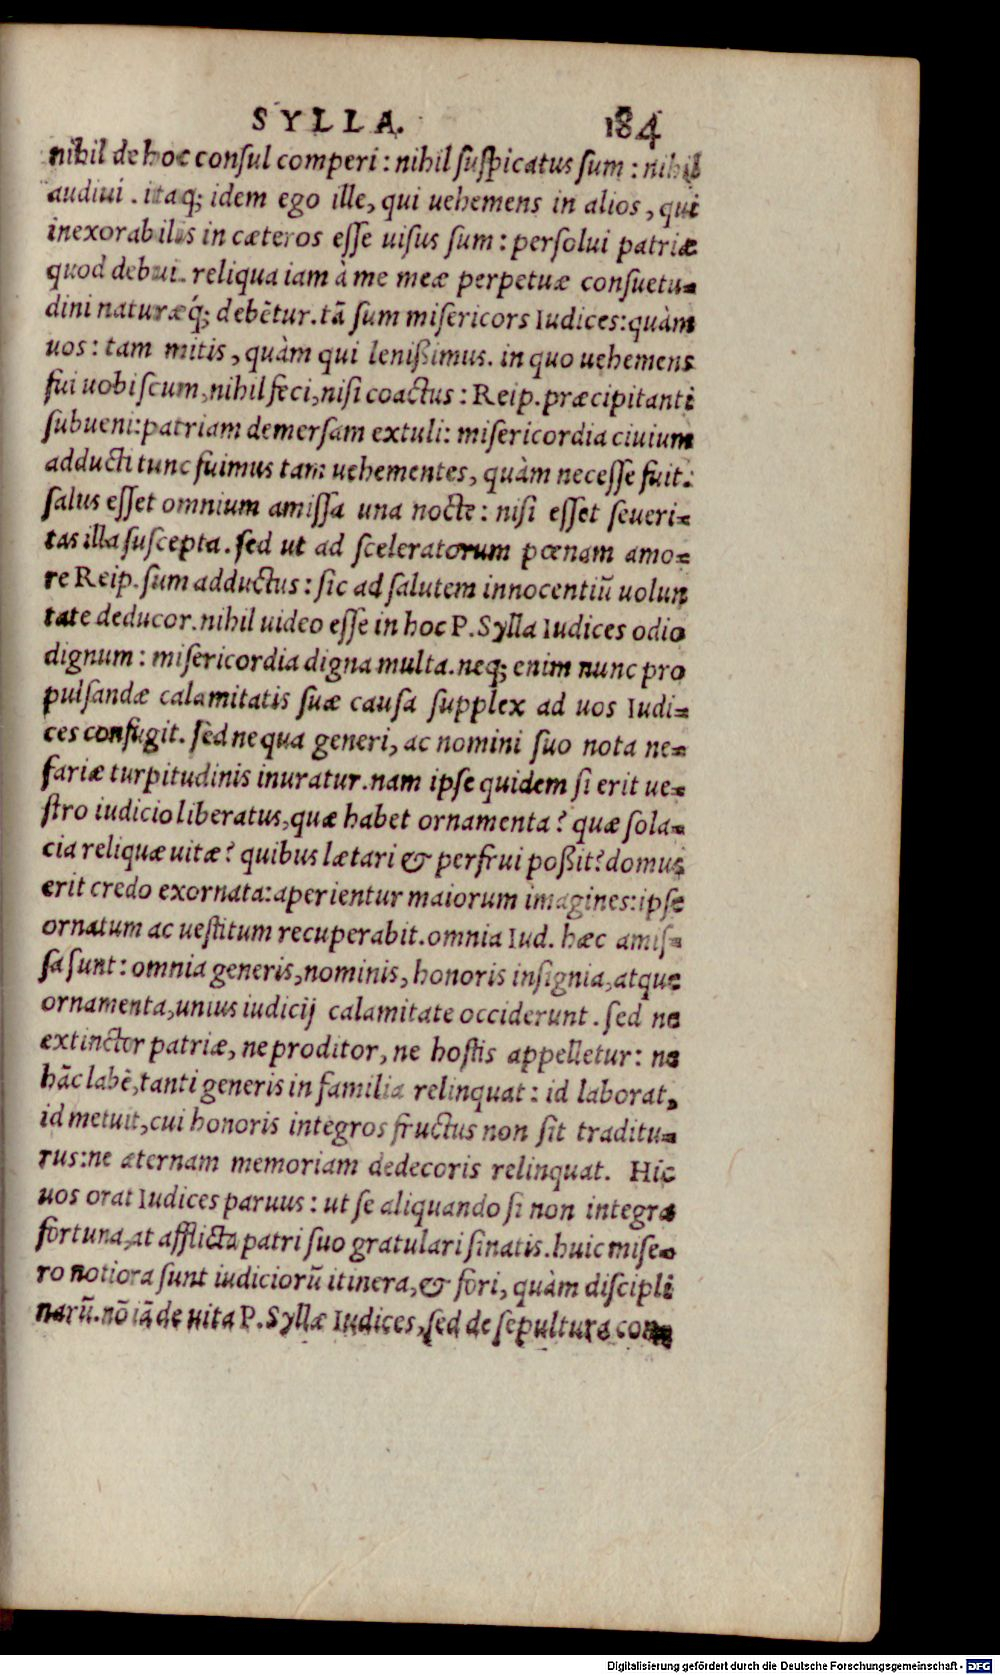 SYLLA. 184
nihil de hoc consul comperi: nihil suspicatus sum: nihil
audiui. itaq; idem ego ille, qui uehemens in alios, qui
inexorabilis in cæteros esse uisus sum: persolui patriæ
quod debui. reliqua iam à me meæ perpetuæ consuetu-
dini naturæq́; debētur. tā sum misericors Iudices: quàm
uos: tam mitis, quàm qui lenißimus. in quo uehemens
fui uobiscum, nihil feci, nisi coactus: Reip. præcipitanti
subueni: patriam demersam extuli: misericordia ciuium
adducti tunc fuimus tam uehementes, quàm necesse fuit:
salus esset omnium amissa una nocte: nisi esset seueri-
tas illa suscepta. sed ut ad sceleratorum pœnam amo-
re Reip. sum adductus: sic ad salutem innocentiū uolun
tate deducor. nihil uideo esse in hoc P. Sylla Iudices odio
dignum: misericordia digna multa. neq; enim nunc pro
pulsandæ calamitatis suæ causa supplex ad uos Iudi-
ces confugit. sed ne qua generi, ac nomini suo nota ne-
fariæ turpitudinis inuratur. nam ipse quidem si erit ue-
stro iudicio liberatus, quæ habet ornamenta? quæ sola-
cia reliquæ uitæ? quibus lætari & perfrui poßit? domus
erit credo exornata: aperientur maiorum imagines: ipse
ornatum ac uestitum recuperabit. omnia Iud. hæc amis-
sa sunt: omnia generis, nominis, honoris insignia, atque
ornamenta, unius iudicij calamitate occiderunt. sed ne
extinctor patriæ, ne proditor, ne hostis appelletur: ne
hāc labē, tanti generis in familia relinquat: id laborat,
id metuit, cui honoris integros fructus non sit traditu-
rus: ne æternam memoriam dedecoris relinquat. Hic
uos orat Iudices paruus: ut se aliquando si non integra
fortuna, at afflicta patri suo gratulari sinatis. huic mise-
ro notiora sunt iudiciorū itinera, & fori, quàm discipli
narū. nō iā de uita P. Syllæ Iudices, sed de sepultura con-
Digitalisierung gefördert durch die Deutsche Forschungsgemeinschaft - DFG